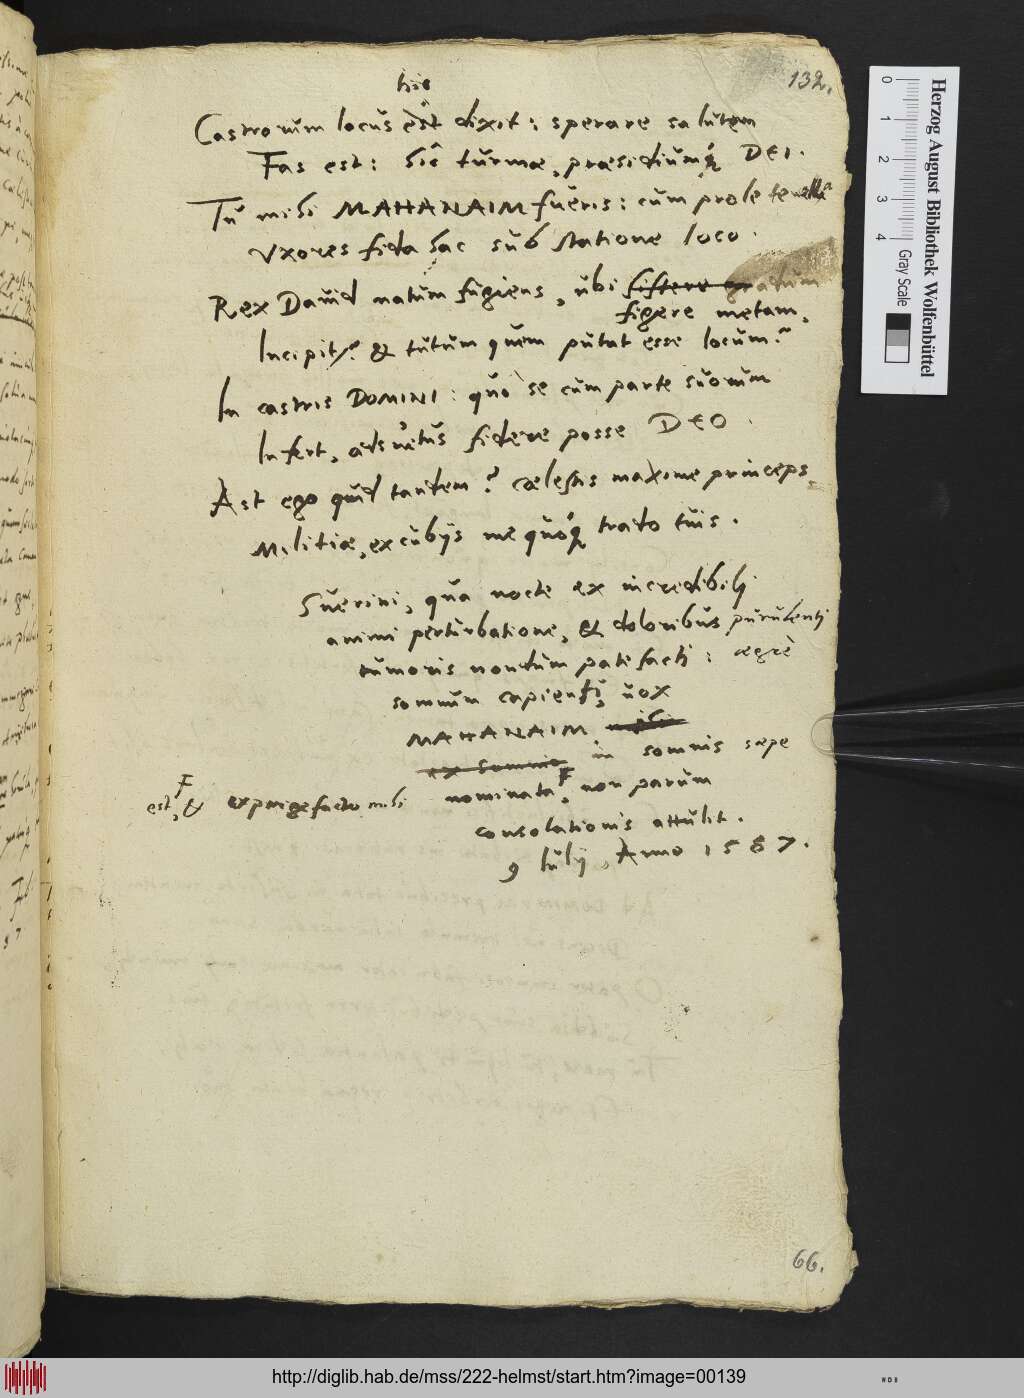 132.
hic
Castrorum locus est dixit: sperare salutem
Fas est: hic turmæ, præsidiumq́ DEI.
Tu mihi MAHANAIM fueris: cum prole tenella
Vxores fida hac sub statione loco.
Rex Dauid natum fugiens, ubi sistere gradum
figere metam,
Incipit? & tutum quem putat esse locum?
In castris DOMINI: quò se cum parte suorum
Infert, adsuetus fidere posse DEO.
Ast ego quid tandem? cœlestis maxime princeps
Militiæ, excubijs me quoq́ trado tuis.
Suerini, qua nocte ex incredibili
animi perturbatione, & doloribus purulenti
tumoris nondum patefacti: ægrè
somnum capienti, uox
MAHANAIM
ex somnio in somnis sæpe
est, & expergefacto mihi nominata F, non parum
consolationis attulit.
9 Iulij, Anno 1587.
66.
Herzog August Bibliothek Wolfenbüttel
Gray Scale
0 1 2 3 4
http://diglib.hab.de/mss/222-helmst/start.htm?image=00139